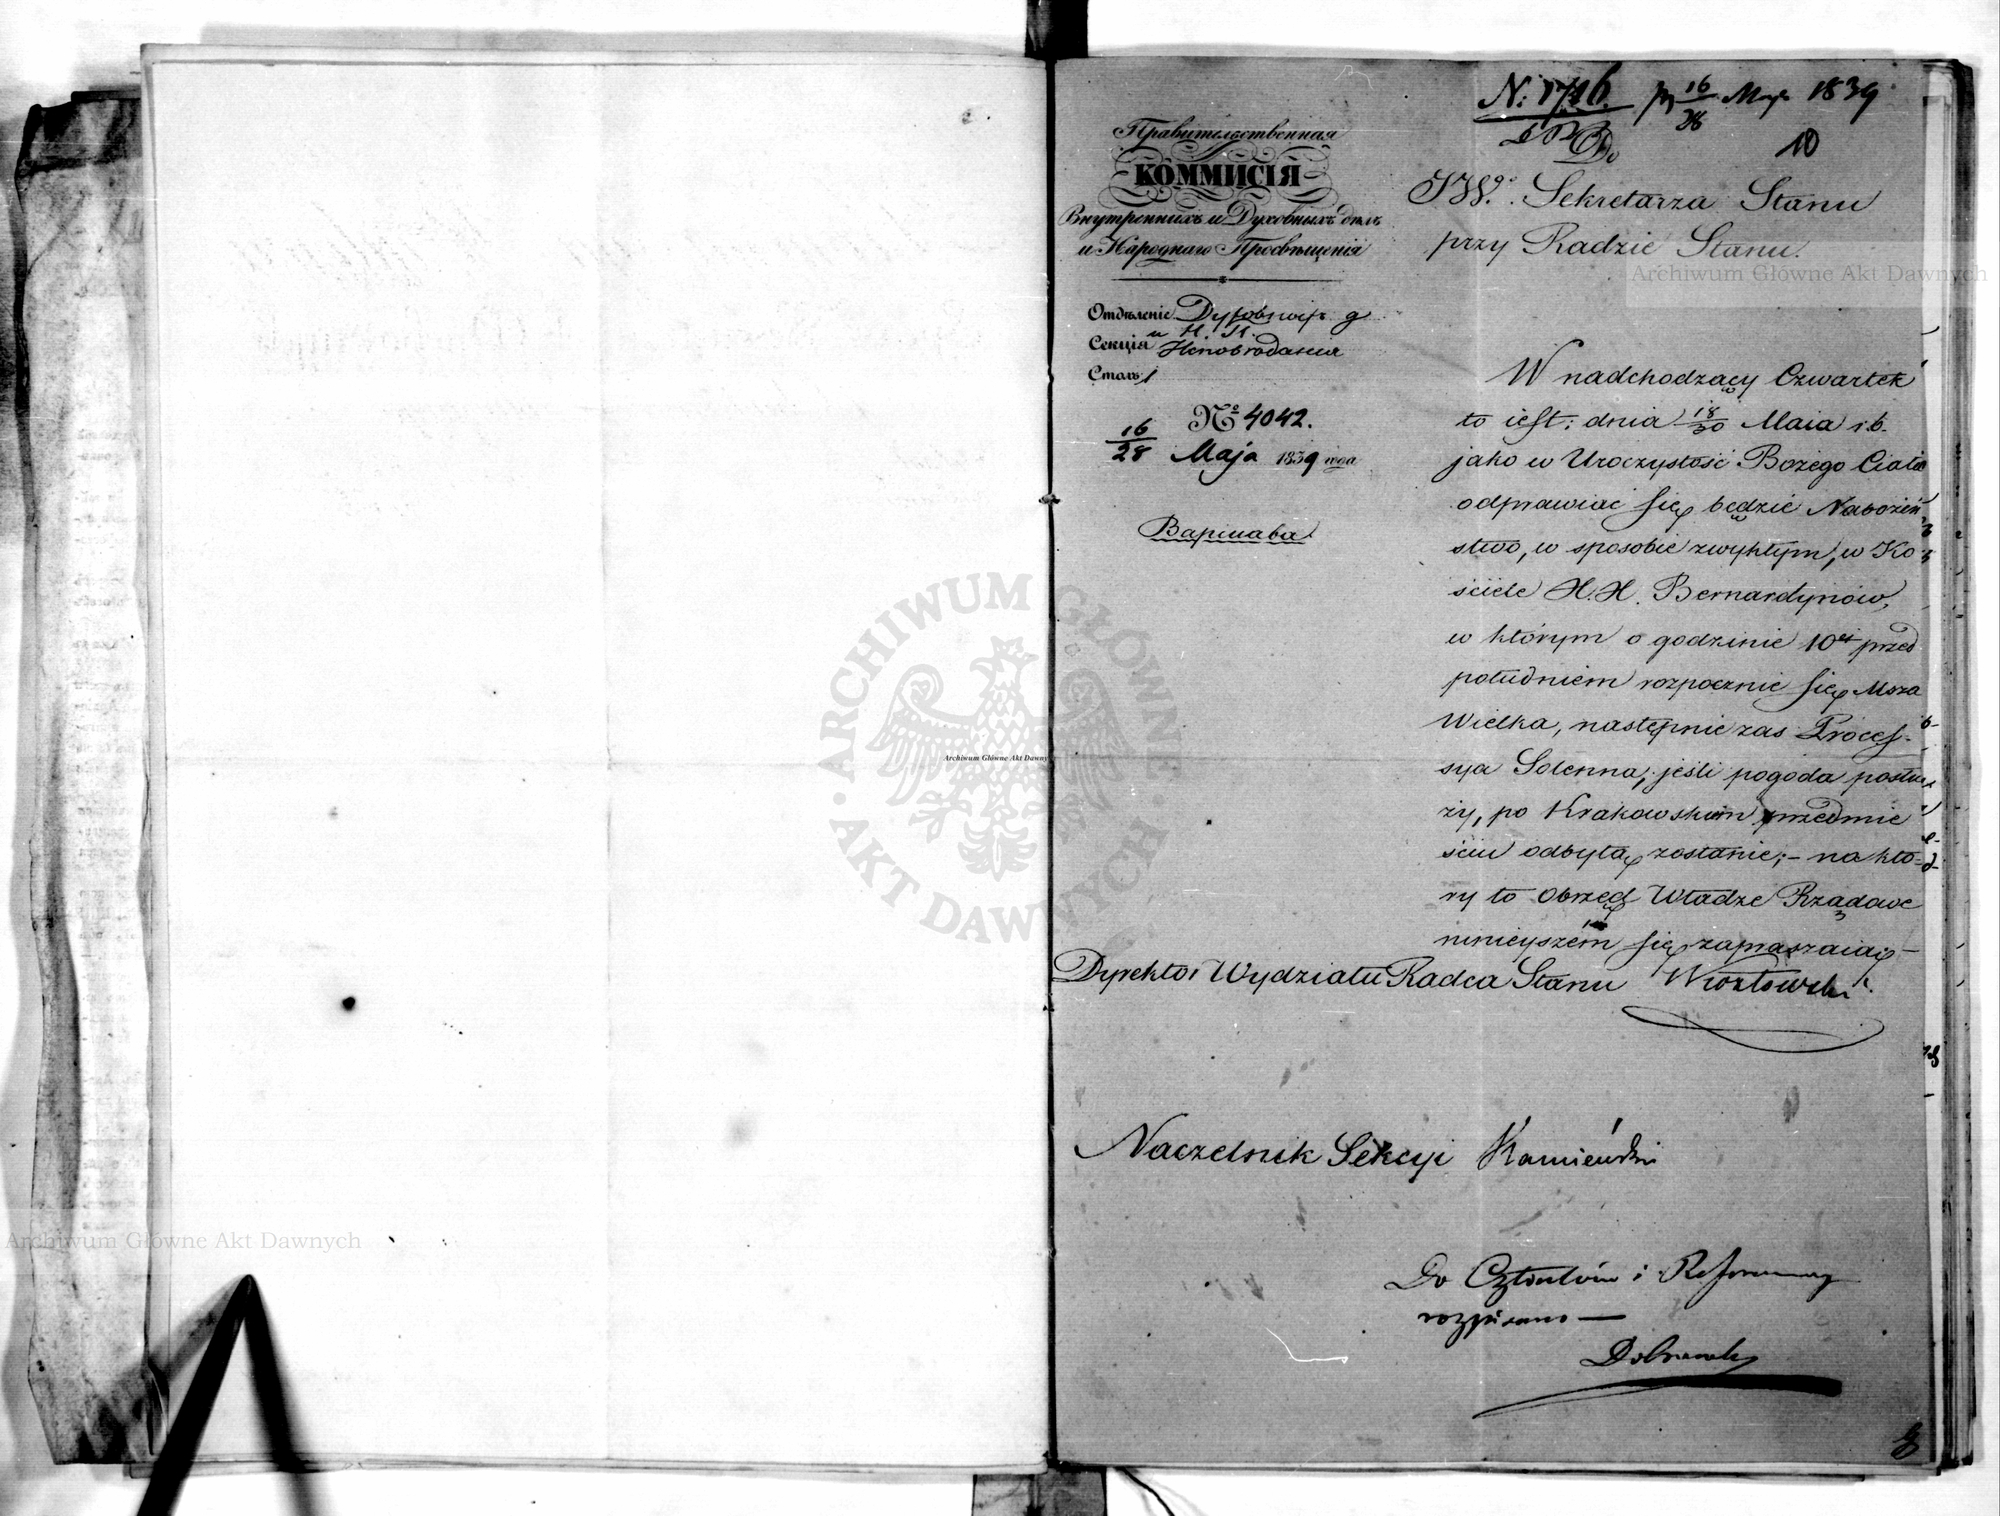 N: 1716. 16/28 Maja 1839
10
Правительственная
КОММИСІЯ
Внутреннихъ и Духовныхъ дѣлъ
и Народнаго Просвѣщенія
Отдѣленіе
Секція
Стат: 1
№ 4042.
16/28 Maja 1839 года
Варшава
Do
JWo. Sekretarza Stanu
przy Radzie Stanu.
W nadchodzący Czwartek
to iest: dnia 18/30 Maia r.b.
jako w Uroczystość Bożego Ciała
odprawiać się będzie Nabożeń
stwo, w sposobie zwykłym, w Ko
ściele X.X. Bernardynów,
w którym o godzinie 10ej przed
południem rozpocznie się Msza
Wielka, następnie zas Proces-
sya Solenna, jeśli pogoda posłu
ży, po Krakowskim przedmie
ściu odbytą zostanie; - na któ-
ry to Obrzęd Władze Rządowe
ninieyszém się zapraszaią. -
Dyrektor Wydziału Radca Stanu
Naczelnik Sekcyi Kamieński
Do Członków i Referendarzy
rozpisano —
Archiwum Główne Akt Dawnych
Archiwum Główne Akt Dawnych
Archiwum Główne Akt Dawny
ARCHIWUM GŁÓWNE · AKT DAWNYCH ·